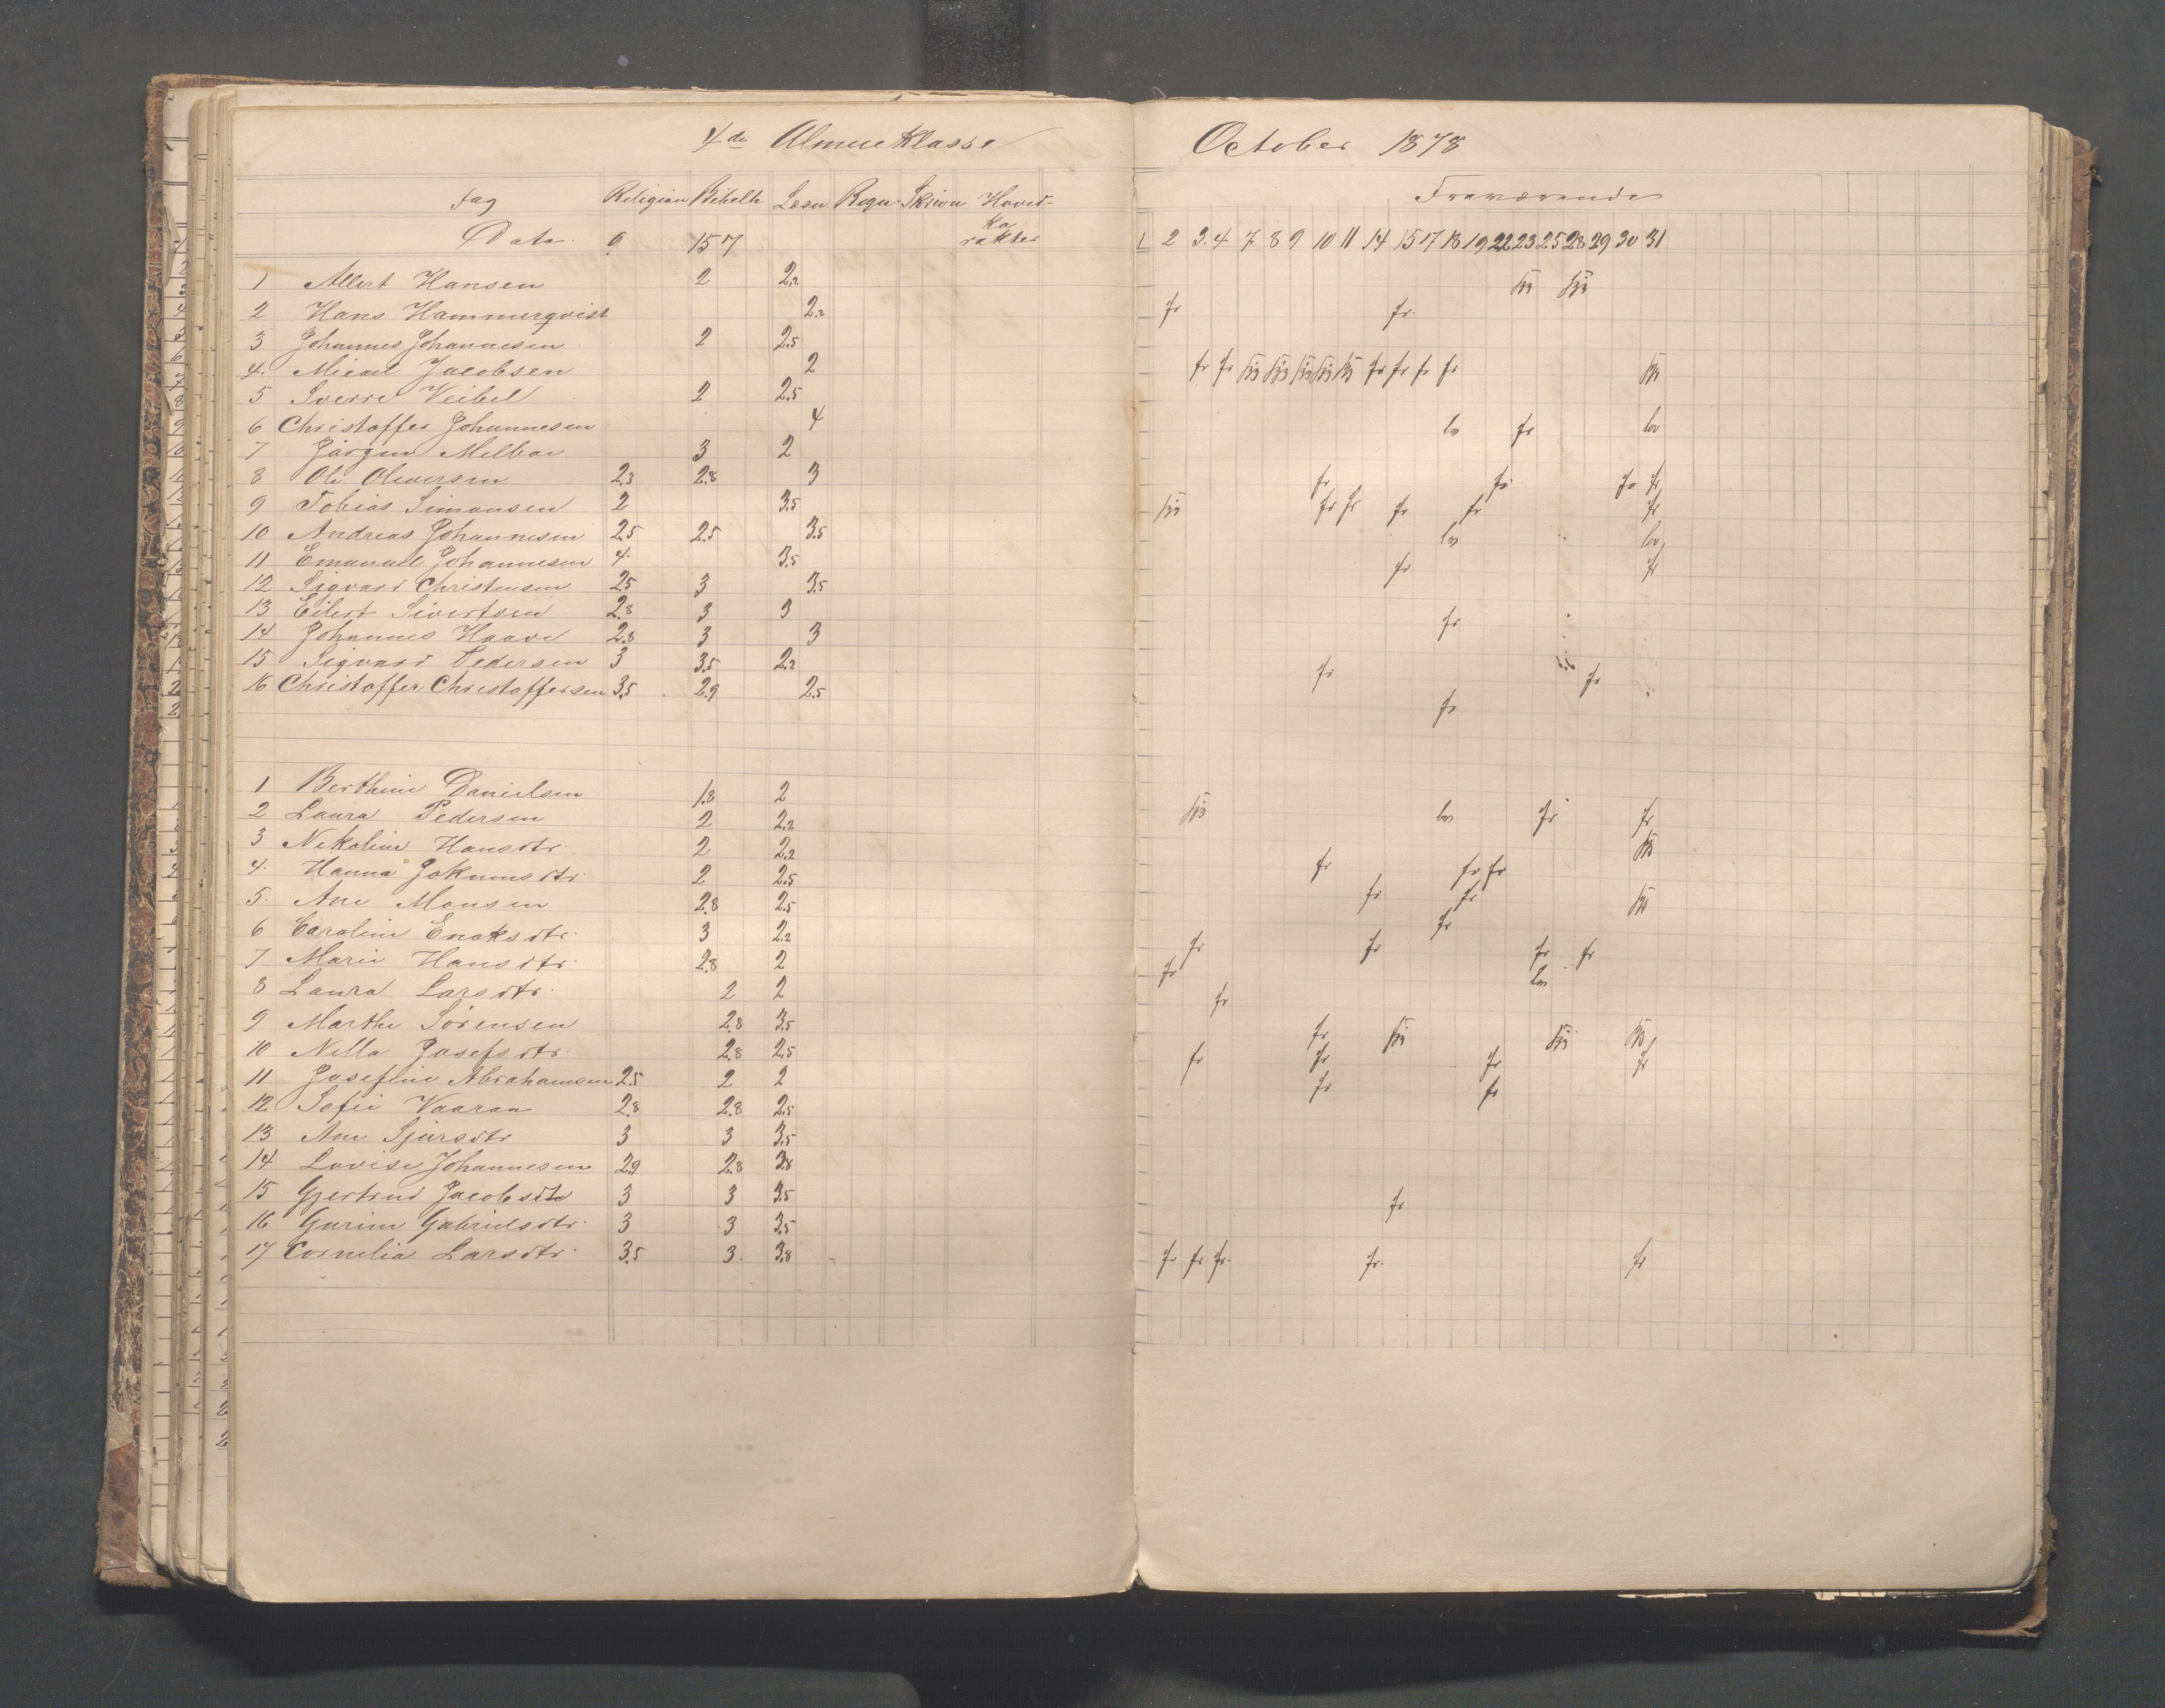 4de Almueklasse
Fag Religion Bibelh Læsn Regn Skrivn Hoved-
Dato. 9 15 17 ka
rakter
1 Allert Hansen 2 2.2
2 Hans Hammerqvist 2.2
3 Johannes Johannesen 2 2.5
4. Micael Jacobsen 2
5 Sverre Veibel 2 2.5
6 Christoffer Johannesen 4
7 Jörgen Melbae 3 2
8 Ole Oliversen 2.3 2.8 3
9 Tobias Simonsen 2 3.5
10 Andreas Johannesen 2.5 2.5 3.5
11 Emanuel Johannesen 4. 3.5
12 Sigvard Christensen 2.5 3 3.5
13 Eilert Sivertsen 2.8 3 3
14 Johannes Haave 2.8 3 3
15 Sigvard Pedersen 3 3.5 2.2
16 Christoffer Christoffersen 3.5 2.9 2.5
1 Berthine Danielsen 1.8 2
2 Laura Pedersen 2 2.2
3 Nikoline Hansdtr. 2 2.2
4. Hanna Jokumsdtr. 2 2.5
5. Ane Monsen 2.8 2.5
6 Caroline Enoksdtr. 3 2.2
7 Marie Hansdtr. 2.8 2
8 Laura Larsdtr. 2 2
9 Marthe Sörensen 2.8 3.5
10 Nella Josefsdtr. 2.8 2.5
11 Josefine Abrahamsen 2.5 2 2
12 Sofie Vaaraa 2.8 2.8 2.5
13 Ane Sjursdtr 3 3 3.5
14 Lovise Johannesen 2.9 2.8 3.8
15 Gjertrud Jacobsdtr 3 3 3.5
16 Gurine Gabrielsdtr. 3 3 3.5
17 Cornelia Larsdtr. 3.5 3. 3.8
October 1878
Fraværende
1 2 3. 4 7 8 9 10 11 14 15 17 18 19 22 23 25 28 29 30 31
fr fr.
fr fr fr fr fr fr
fr
fr fr fr fr
fr fr fr fr fr
fr fr
fr
fr fr
fr
fr fr
fr fr fr
fr fr
fr
fr fr fr fr
fr
fr
fr
fr fr fr fr
fr fr
fr
fr fr fr. fr. fr